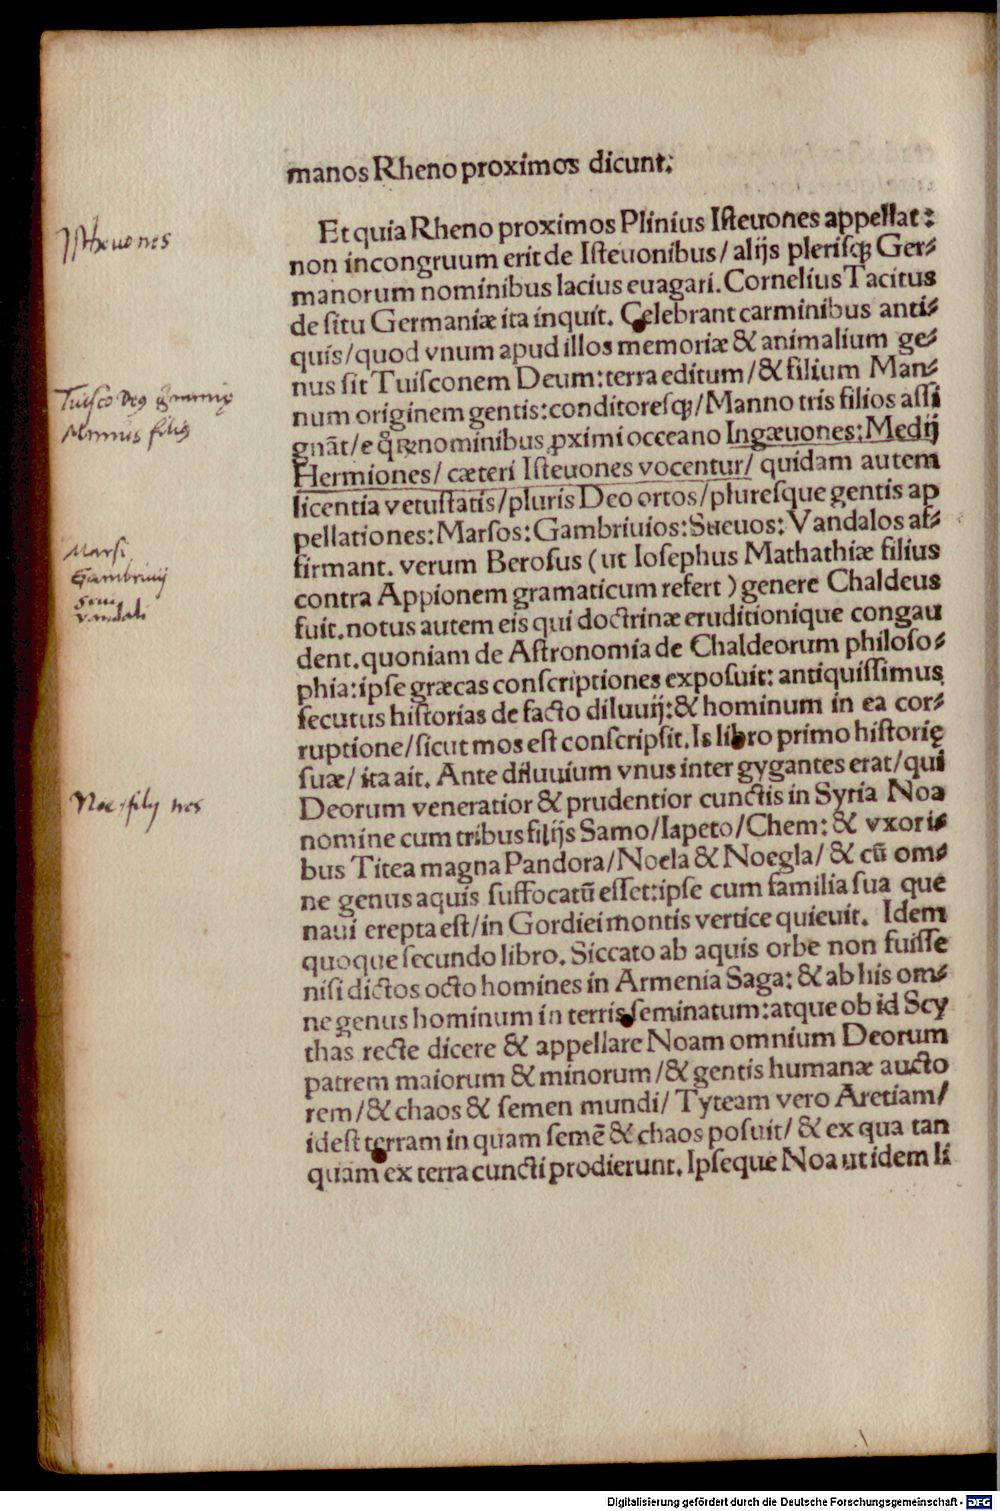 manos Rheno proximos dicunt.
Et quia Rheno proximos Plinius Isteuones appellat:
non incongruum erit de Isteuonibus/ alijs plerisqꝫ Ger⸗
manorum nominibus lacius euagari. Cornelius Tacitus
de situ Germaniæ ita inquit. Celebrant carminibus anti⸗
quis/quod vnum apud illos memoriæ & animalium ge⸗
nus sit Tuisconem Deum: terra editum/& filium Man⸗
num originem gentis: conditoresqꝫ/Manno tris filios assi
gnāt/e qͦꝝ nominibus ꝓximi occeano Ingæuones: Medij
Hermiones/ cæteri Isteuones vocentur/ quidam autem
licentia vetustatis/pluris Deo ortos/pluresque gentis ap
pellationes: Marsos: Gambriuios: Sueuos: Vandalos af⸗
firmant. verum Berosus (ut Iosephus Mathathiæ filius
contra Appionem gramaticum refert) genere Chaldeus
fuit. notus autem eis qui doctrinæ eruditionique congau
dent. quoniam de Astronomia de Chaldeorum philoso⸗
phia: ipse græcas conscriptiones exposuit: antiquissimus
secutus historias de facto diluuij: & hominum in ea cor⸗
ruptione/sicut mos est conscripsit. Is libro primo historię
suæ/ ita ait. Ante diluuium vnus inter gygantes erat/qui
Deorum veneratior & prudentior cunctis in Syria Noa
nomine cum tribus filijs Samo/Iapeto/Chem: & vxori⸗
bus Titea magna Pandora/Noela & Noegla/ & cū om⸗
ne genus aquis suffocatū esset: ipse cum familia sua que
naui erepta est/in Gordiei montis vertice quieuit. Idem
quoque secundo libro. Siccato ab aquis orbe non fuisse
nisi dictos octo homines in Armenia Saga: & ab his om⸗
ne genus hominum in terris seminatum: atque ob id Scy
thas recte dicere & appellare Noam omnium Deorum
patrem maiorum & minorum/& gentis humanæ aucto
rem/& chaos & semen mundi/ Tyteam vero Aretiam/
idest terram in quam semē & chaos posuit/ & ex qua tan
quam ex terra cuncti prodierunt. Ipseque Noa ut idem li
Isthevones
Tuisco
Mannus filius
Marsi
Gambrivij
Suevi
Vandali
Noe filij tres
Digitalisierung gefördert durch die Deutsche Forschungsgemeinschaft - DFG